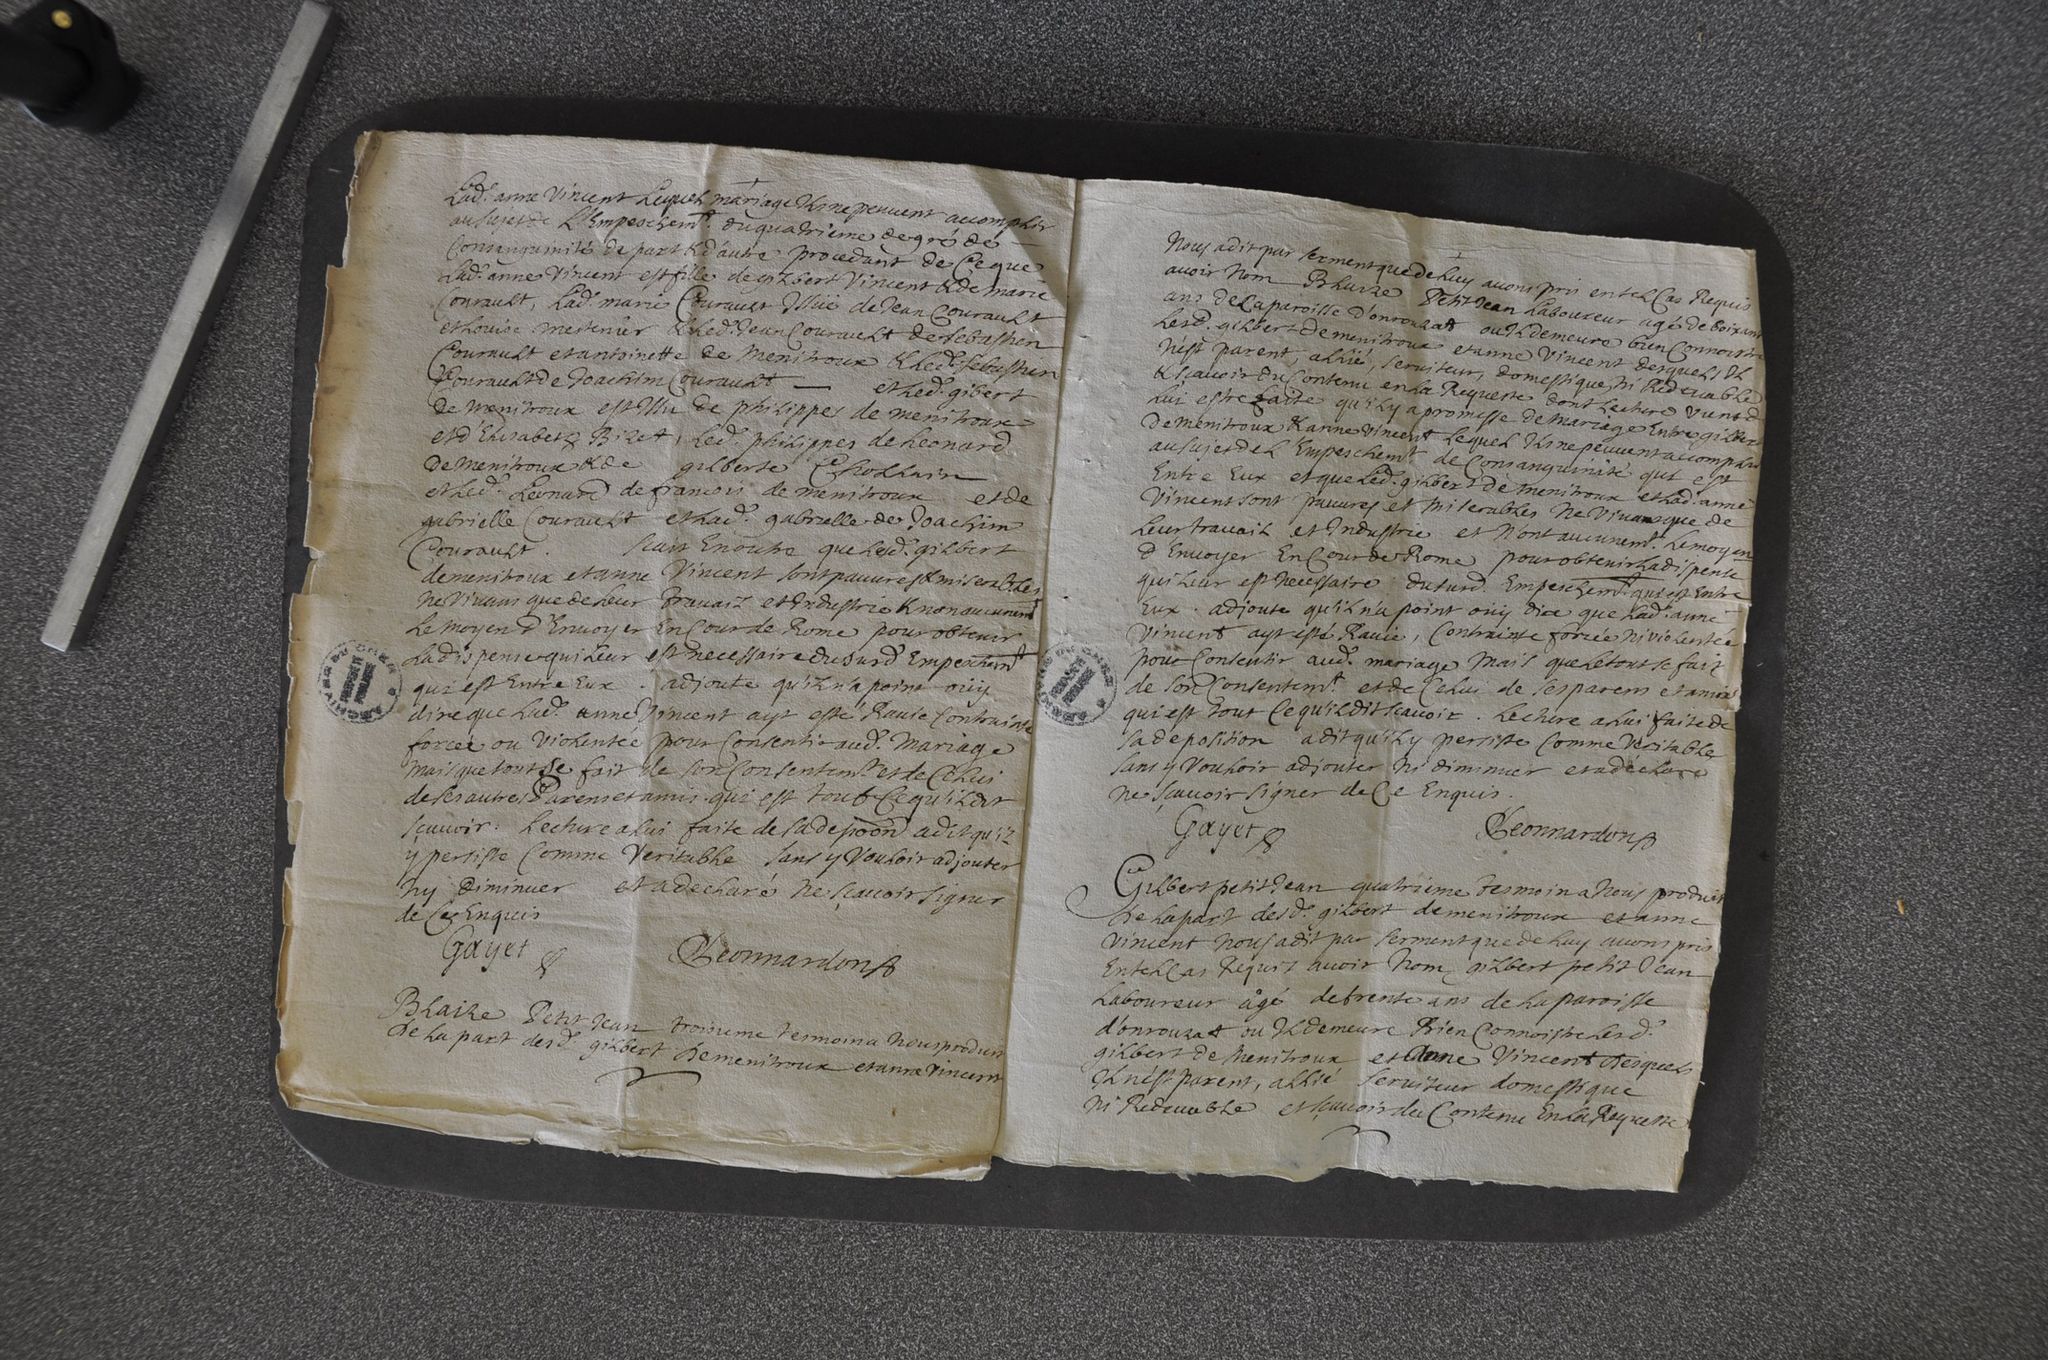 Lad. anne Vincent Lequel mariage Ils ne peuvent accomplir
au sujet de L'Empeschemt. du quatrieme degré de
Consanguinité de part & d'autre procedant de Ce que
Lad. anne Vincent est fille de gilbert Vincent & de marie
Courault, Lad. marie Courault Issüe de Jean Courault
et Louise mestenier & Led. Jean Courault de Sebastien
Courault et antoinette de menitroux & Led. Sebastien
Courault de Joachim Courault — et Led. gilbert
De menitroux est Issu de philippes de menitroux
et d'Elisabetz Bizet, Led. philippes de Leonard
De menitroux & de gilberte Chollain
et Led. Leonard de francois de menitroux et de
gabrielle Courault et Lad. gabrielle de Joachim
Courault. scait En outre que Lesd. gilbert
demenitroux et anne Vincent sont pauvres & miserables
Ne Vivans que de Leur travail et Industrie & n'ont aucunemt
Le moyen d'Envoyer En Cour de Rome pour obtenir
La dispense qui Leur est necessaire du surd. Empeschemt
qui est Entre Eux. adjoute qu'il n'a point oüy
dire que Lad. anne Vincent ayt esté Ravie Contrainte
forcée ou Violentée pour Consentir aud. Mariage
mais que tout se fait de son Consentemt et de Celui
de ses autres Parens et amis qui est tout Ce qu'il dit
scavoir. Lecture a lui faite de sa depoon a dit qu'il
y persiste Comme Veritable sans y Vouloir adjouter
ny diminuer et a declaré ne scavoir signer
de Ce Enquis
Gayet Leonnardon
Blaise Petit Jean troisieme temoin a Nous produit
de la part desd. gilbert demenitroux et anne Vincent
ARCHIVES DU CHER
Nous a dit par serment que de Luy avons pris en tel Cas Requis
avoir Nom Blaise Petit Jean Laboureur agé de soixante
ans de La paroisse d'onrouzat ou Il demeure bien Connoistre
Lesd. gilbert de menitroux et anne Vincent desquels Il
n'est parent, allié, serviteur, domestique, Ni Redevable
& scavoir du Contenu en La Requeste dont Lecture Vient de
lui estre faite qu'il y a promesse de mariage Entre gilbert
De menitroux & anne Vincent Lequel Ils ne peuvent accomplir
au sujet de L'Empeschemt de Consanguinité qui est
Entre Eux et que Led. gilbert de menitroux et Lad. anne
Vincent sont pauvres et miserables Ne Vivans que de
Leur travail et Industrie et N'ont aucunemt. Le moyen
d'Envoyer En Cour de Rome pour obtenir La dispense
qui Leur est necessaire du surd. Empeschemt. qui est Entre
Eux. adjoute qu'il n'a point oüy dire que Lad. anne
Vincent ayt esté Ravie, Contrainte forcée ni violentée
pour Consentir aud. mariage mais que Le tout se fait
de son Consentemt et de Celui de ses parens et amis
qui est tout Ce qu'il dit scavoir. Lecture a lui faite de
sa deposition a dit qu'il y persiste Comme Veritable
sans y Vouloir adjouter Ni diminuer et a declare
ne scavoir signer de Ce Enquis.
Gayet Leonnardon
Gilbert petit Jean quatrieme tesmoin a Nous produit
De La part desd. gilbert demenitroux et anne
Vincent Nous a dit par serment que de Luy avons pris
En tel Cas Requis avoir Nom gilbert petit Jean
Laboureur âgé de trente ans de La paroisse
d'onrouzat ou Il demeure Bien Connoistre Lesd.
gilbert de Menitroux et Anne Vincent desquels
Il n'est parent, allié serviteur domestique
Ni Redevable et scavoir du Contenu En La Requeste
ARCHIVES DU CHER